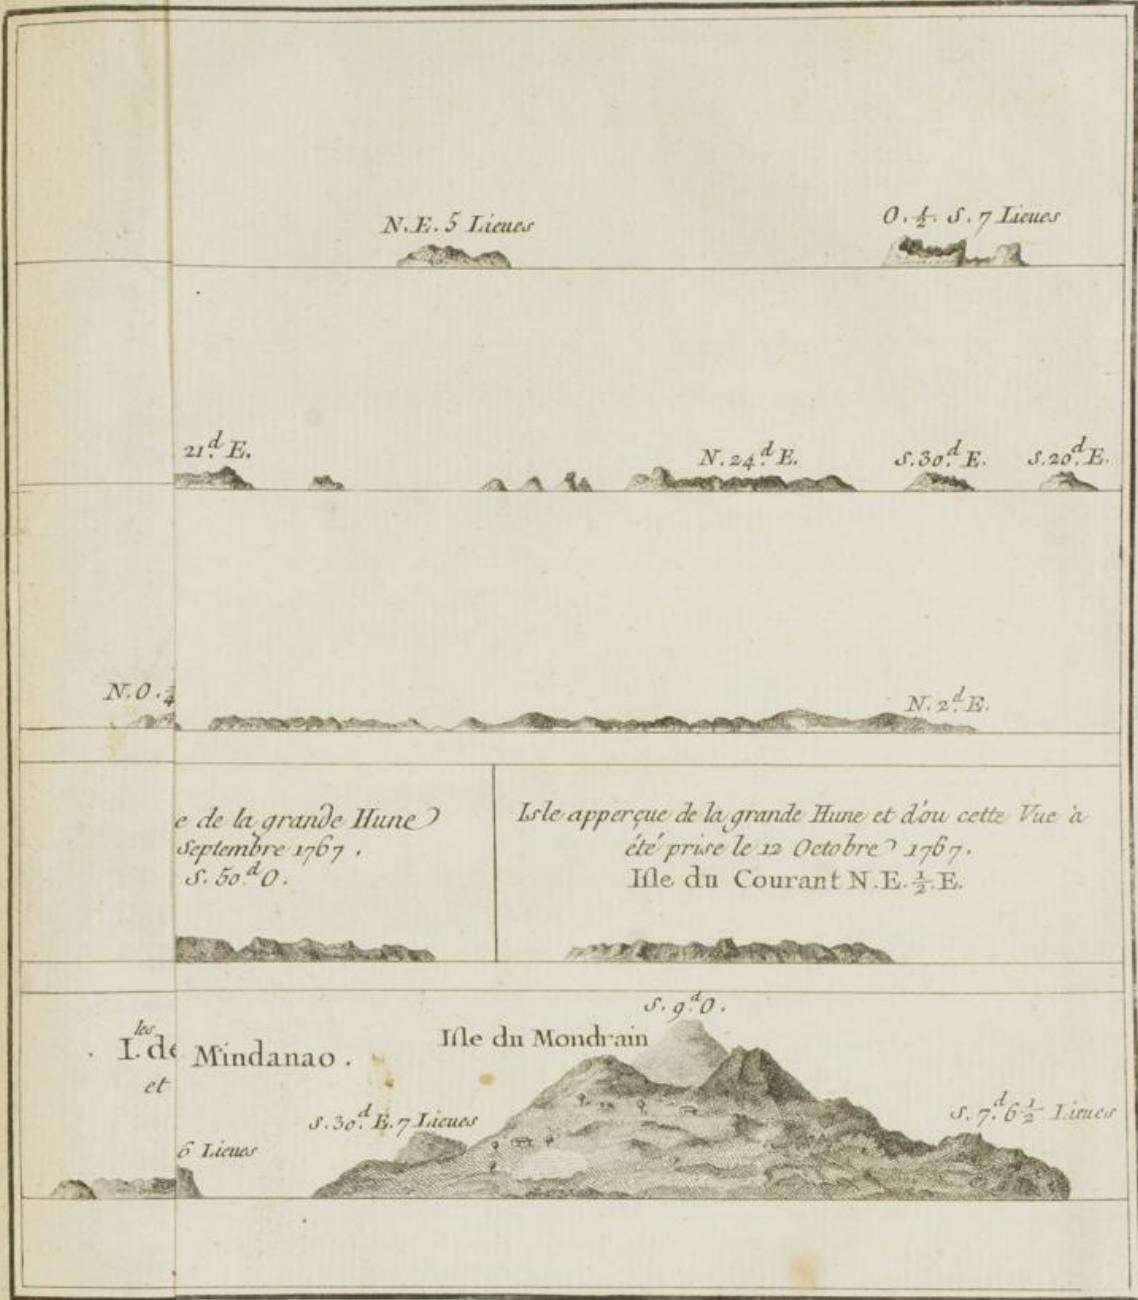 N.E. 5 Lieues
O. ½. S. 7 Lieues
21.d E.
N. 24.d E.
S. 30.d E.
S. 20.d E.
N.O. ¼
N. 2.d E.
e de la grande Hune
Septembre 1767.
S. 50.d O.
Isle apperçue de la grande Hune et d'ou cette Vue à
été prise le 12 Octobre 1767.
Isle du Courant N.E. ½. E.
S. 9.d O.
les
I. de
Mindanao.
et
Isle du Mondrain
S. 30.d E. 7 Lieues
S. 7.d 6 ½ Lieues
6 Lieues